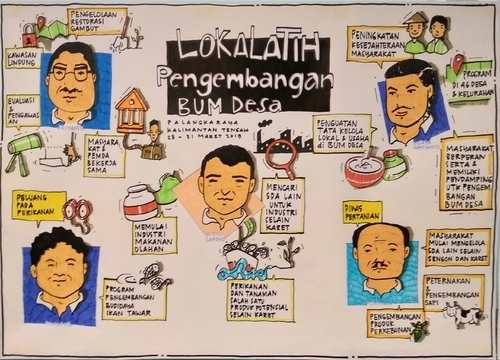 LOKALATIH
Pengembangan
BUM Desa
PALANGKARAYA
KALIMANTAN TENGAH
18 - 21 MARET 2019
PENGELOLAAN
RESTORASI
GAMBUT
KAWASAN
LINDUNG
EVALUASI
&
PENGAWAS
AN
MASYARA
KAT &
PEMDA
BEKERJA
SAMA
PENINGKATAN
KESEJAHTERAAN
MASYARAKAT
PROGRAM
DI 46 DESA
& KELURAHAN
PENGUATAN
TATA KELOLA
LOKAL & USAHA
di BUM DESA
MASYARAKAT
BERPERAN
SERTA &
MEMILIKI
PENDAMPING
UTK PENGEM
BANGAN
BUM DESA
MEMULAI
INDUSTRI
MAKANAN
OLAHAN
MENCARI
SDA LAIN
UNTUK
INDUSTRI
SELAIN
KARET
PERIKANAN
DAN TANAMAN
SALAH SATU
PRODUK POTENSIAL
SELAIN KARET
PELUANG
PADA
PERIKANAN
PROGRAM
PENGEMBANGAN
BUDIDAYA
IKAN TAWAR
DINAS
PERTANIAN
MASYARAKAT
MULAI MENGELOLA
SDA LAIN SELAIN
SENGON DAN KARET
PETERNAKAN
&
PENGEMBANGAN
SAPI
PENGEMBANGAN
PRODUK
PERKEBUNAN